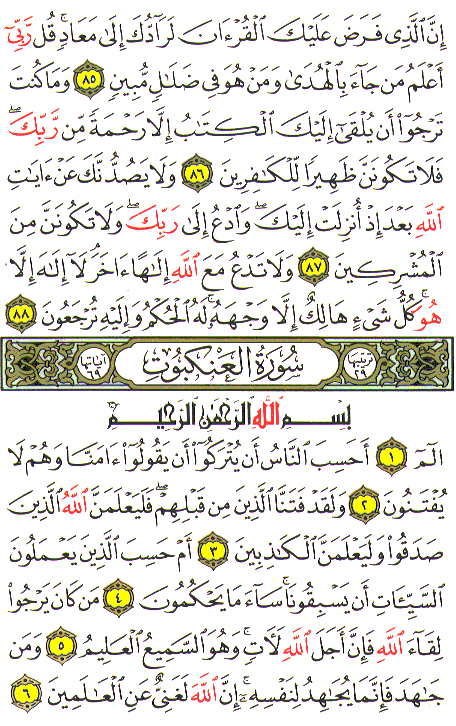 إِنَّ ٱلَّذِى فَرَضَ عَلَيْكَ ٱلْقُرْءَانَ لَرَآدُّكَ إِلَىٰ مَعَادٍ ۚ قُل رَّبِّىٓ
أَعْلَمُ مَن جَآءَ بِٱلْهُدَىٰ وَمَنْ هُوَ فِى ضَلَٰلٍ مُّبِينٍ ٨٥ وَمَا كُنتَ
تَرْجُوٓا۟ أَن يُلْقَىٰٓ إِلَيْكَ ٱلْكِتَٰبُ إِلَّا رَحْمَةً مِّن رَّبِّكَ ۖ
فَلَا تَكُونَنَّ ظَهِيرًا لِّلْكَٰفِرِينَ ٨٦ وَلَا يَصُدُّنَّكَ عَنْ ءَايَٰتِ
ٱللَّهِ بَعْدَ إِذْ أُنزِلَتْ إِلَيْكَ ۖ وَٱدْعُ إِلَىٰ رَبِّكَ ۖ وَلَا تَكُونَنَّ مِنَ
ٱلْمُشْرِكِينَ ٨٧ وَلَا تَدْعُ مَعَ ٱللَّهِ إِلَٰهًا ءَاخَرَ ۘ لَآ إِلَٰهَ إِلَّا
هُوَ ۚ كُلُّ شَىْءٍ هَالِكٌ إِلَّا وَجْهَهُۥ ۚ لَهُ ٱلْحُكْمُ وَإِلَيْهِ تُرْجَعُونَ ٨٨
ترتيبها ٢٩ سُورَةُ العَنكَبُوتِ آياتها ٦٩
بِسْمِ ٱللَّهِ ٱلرَّحْمَٰنِ ٱلرَّحِيمِ
الٓمٓ ١ أَحَسِبَ ٱلنَّاسُ أَن يُتْرَكُوٓا۟ أَن يَقُولُوٓا۟ ءَامَنَّا وَهُمْ لَا
يُفْتَنُونَ ٢ وَلَقَدْ فَتَنَّا ٱلَّذِينَ مِن قَبْلِهِمْ ۖ فَلَيَعْلَمَنَّ ٱللَّهُ ٱلَّذِينَ
صَدَقُوا۟ وَلَيَعْلَمَنَّ ٱلْكَٰذِبِينَ ٣ أَمْ حَسِبَ ٱلَّذِينَ يَعْمَلُونَ
ٱلسَّيِّـَٔاتِ أَن يَسْبِقُونَا ۚ سَآءَ مَا يَحْكُمُونَ ٤ مَن كَانَ يَرْجُوا۟
لِقَآءَ ٱللَّهِ فَإِنَّ أَجَلَ ٱللَّهِ لَءَاتٍ ۚ وَهُوَ ٱلسَّمِيعُ ٱلْعَلِيمُ ٥ وَمَن
جَٰهَدَ فَإِنَّمَا يُجَٰهِدُ لِنَفْسِهِۦٓ ۚ إِنَّ ٱللَّهَ لَغَنِىٌّ عَنِ ٱلْعَٰلَمِينَ ٦